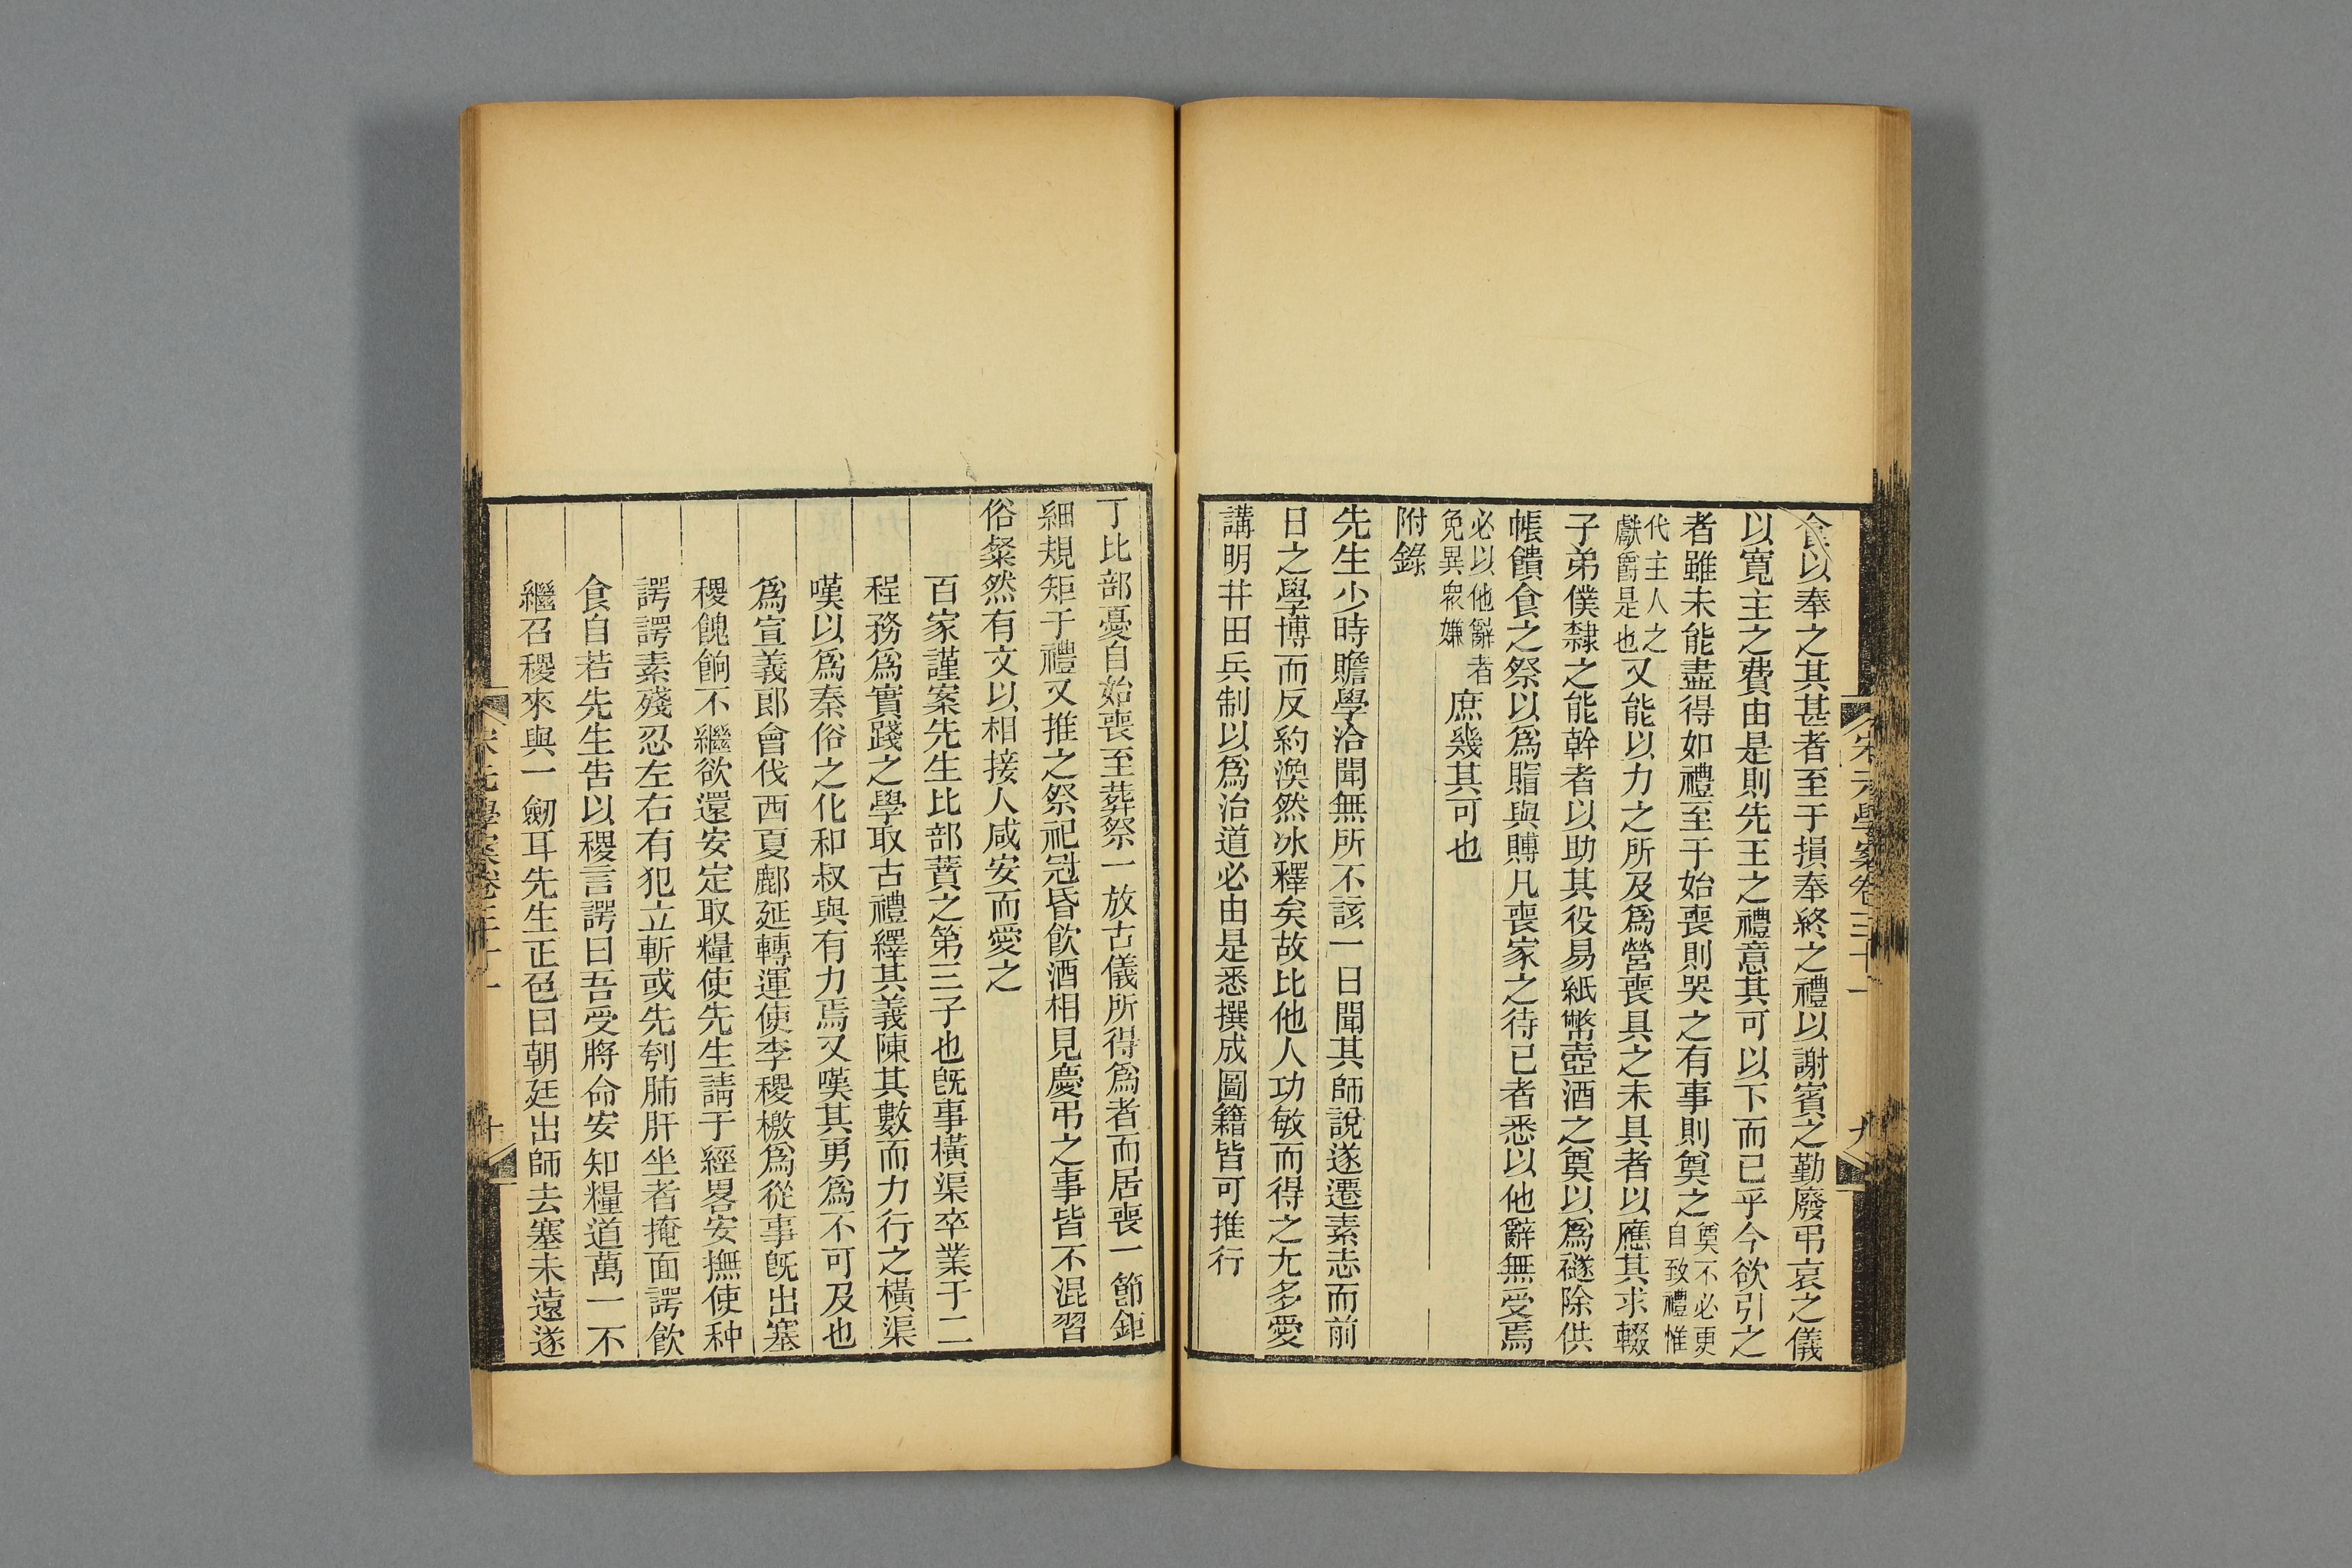 食以奉之其甚者至于損奉終之禮以謝賓之勤廢弔哀之儀
以寬主之費由是則先王之禮意其可以下而已乎今欲引之
者雖未能盡得如禮至于始喪則哭之有事則奠之奠不必更自致禮惟
代主人之獻爵是也又能以力之所及爲營喪具之未具者以應其求輟
子弟僕隸之能幹者以助其役易紙幣壺酒之奠以爲禭除供
帳饋食之祭以爲賵與賻凡喪家之待已者悉以他辭無受焉
必以他辭者免異衆嫌庶幾其可也
附錄
先生少時贍學洽聞無所不該一日聞其師說遂遷素志而前
日之學博而反約渙然冰釋矣故比他人功敏而得之尤多愛
講明井田兵制以爲治道必由是悉撰成圖籍皆可推行
宋元學案卷三十一 九
丁比部憂自始喪至葬祭一放古儀所得爲者而居喪一節鉅
細規矩于禮又推之祭祀冠昏飮酒相見慶弔之事皆不混習
俗粲然有文以相接人咸安而愛之
百家謹案先生比部蕡之第三子也旣事橫渠卒業于二
程務爲實踐之學取古禮繹其義陳其數而力行之橫渠
嘆以爲秦俗之化和叔與有力焉又嘆其勇爲不可及也
爲宣義郎會伐西夏鄜延轉運使李稷檄爲從事旣出塞
稷餽餉不繼欲還安定取糧使先生請于經畧安撫使种
諤諤素殘忍左右有犯立斬或先刳肺肝坐者掩面諤飮
食自若先生告以稷言諤曰吾受將命安知糧道萬一不
繼召稷來與一劒耳先生正色曰朝廷出師去塞未遠遂
宋元學案卷三十一 十